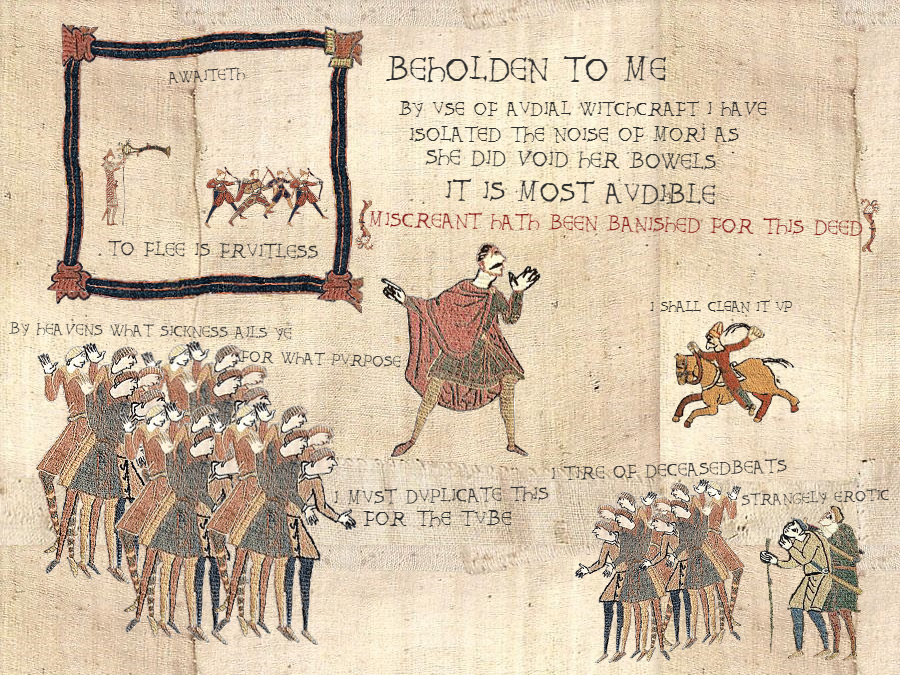 AWAITETH
TO FLEE IS FRVITLESS
BEHOLDEN TO ME
BY VSE OF AVDIAL WITCHCRAFT I HAVE
ISOLATED THE NOISE OF MORI AS
SHE DID VOID HER BOWELS
IT IS MOST AVDIBLE
MISCREANT HATH BEEN BANISHED FOR THIS DEED
I SHALL CLEAN IT VP
BY HEAVENS WHAT SICKNESS AILS YE
FOR WHAT PVRPOSE
I MVST DVPLICATE THIS
FOR THE TVBE
I TIRE OF DECEASEDBEATS
STRANGELY EROTIC